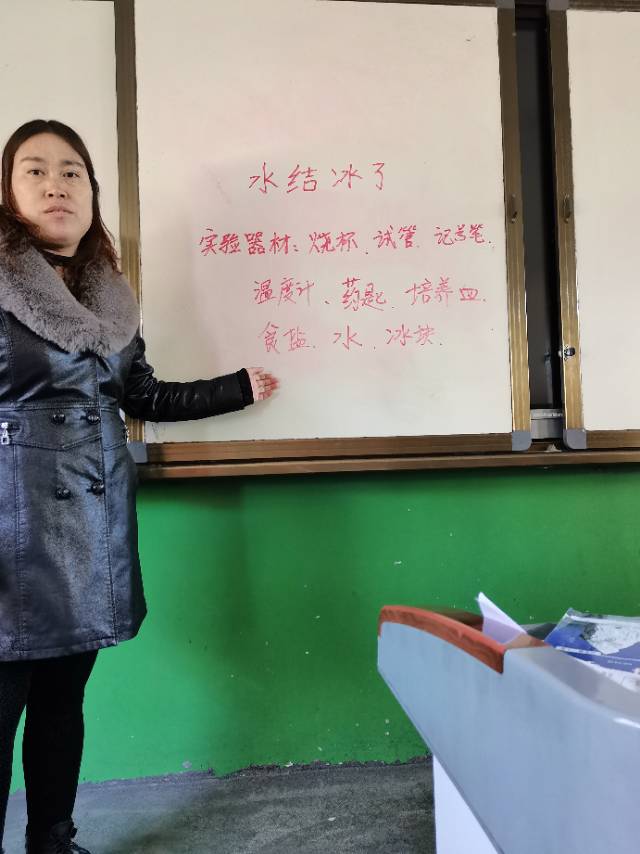 水结冰了
实验器材：烧杯、试管、记号笔、
温度计、药匙、培养皿、
食盐、水、冰块、